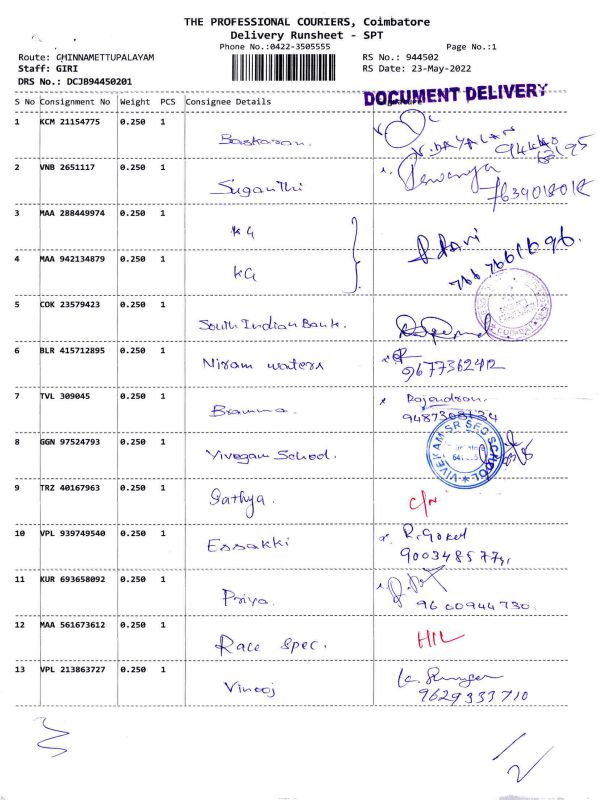 THE PROFESSIONAL COURIERS, Coimbatore
Delivery Runsheet - SPT
Phone No.:0422-3505555 Page No.:1
Route: CHINNAMETTUPALAYAM RS No.: 944502
Staff: GIRI RS Date: 23-May-2022
DRS No.: DCJB94450201
DOCUMENT DELIVERY
S No Consignment No Weight PCS Consignee Details
1 KCM 21154775 0.250 1
Baskaran.
V. DAYALAN
2 VNB 2651117 0.250 1
Suganthi
3 MAA 288449974 0.250 1
KG
4 MAA 942134879 0.250 1
KG
5 COK 23579423 0.250 1
South Indian Bank.
6 BLR 415712895 0.250 1
Niram waters 9677362412
7 TVL 309045 0.250 1 Rajendran.
8 GGN 97524793 0.250 1
Vivegam School. VIVEKAM SR SEC SCHOOL
9 TRZ 40167963 0.250 1
Sathya. C/N
10 VPL 939749540 0.250 1 R. Gokul
Essakki
11 KUR 693658092 0.250 1
Priya. 9600944730.
12 MAA 561673612 0.250 1
Race spec. H/L
13 VPL 213863727 0.250 1
Vinooj 9629333710